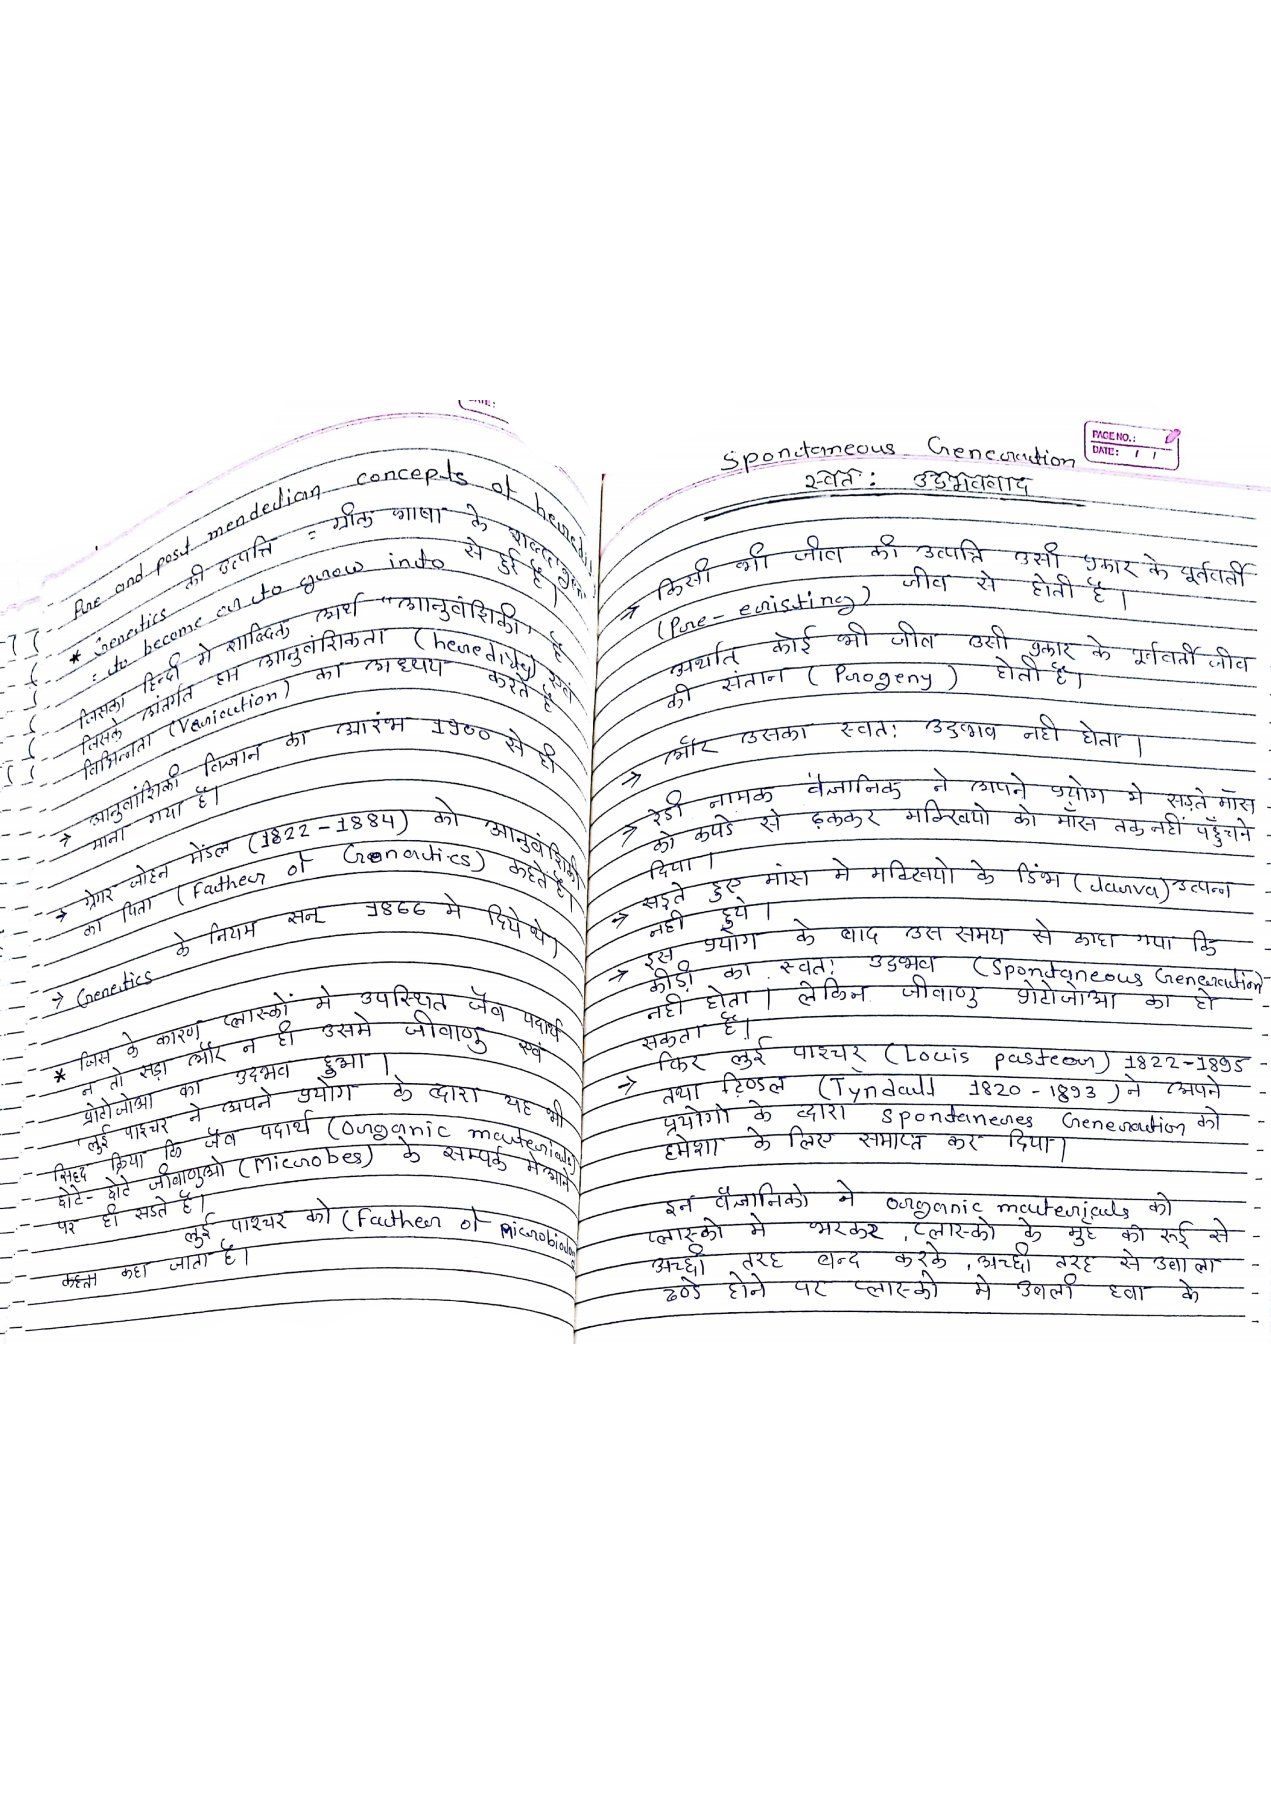 Pre and post mendedian concepts of heredity
* Genetics की उत्पत्ति = ग्रीक भाषा के शब्द gene
: to become or to grow into से हुई है।
जिसका हिन्दी मे शाब्दिक अर्थ "आनुवंशिकी" है
जिसके अंतर्गत हम आनुवंशिकता (heredity) एवं
विभिन्नता (Variation) का अध्यय करते है
→ आनुवांशिकी विज्ञान का आरंभ 1900 से ही
माना गया है।
→ ग्रेगर जोहन मेंडल (1822-1884) को आनुवंशिकी
का पिता (Father of Genetics) कहते है।
→ Genetics के नियम सन् 1866 मे दिये थे।
* जिस के कारण प्लास्कों मे उपस्थित जैव पदार्थ
न तो सड़ा और न ही उसमे जीवाणु एवं
प्रोटोजोआ का उदभव हुआ।
लुई पाश्चर ने अपने प्रयोग के द्वारा यह भी
सिद्द किया कि जैव पदार्थ (Organic materials)
छोटे-छोटे जीवाणुओ (Microbes) के सम्पर्क मे आने
पर ही सडते है।
लुई पाश्चर को (Father of Microbiology
कहा जाता है।
PAGE NO.:
DATE: / /
Spontaneous Generation
स्वतं: उदभववाद
→ किसी भी जीव की उत्पत्ति उसी प्रकार के पूर्ववर्ती
(Pre-existing) जीव से होती है।
अर्थात कोई भी जीव उसी प्रकार के पूर्ववर्ती जीव
की संतान (Progeny) होती है।
→ और उसका स्वत: उदभाव नही होता।
→ रेडी नामक वैज्ञानिक ने अपने प्रयोग मे सड़ते माँस
को कपडे से ढ़ककर मक्खियो को माँस तक नहीं पहुँचने
दिया।
→ सड़ते हुए मांस मे मक्खियो के डिंभ (larva) उत्पन्न
नही हुये।
→ इस प्रयोग के बाद उस समय से काहा गया कि
कीड़ो का स्वत: उदभव (Spontaneous Generation)
नही होता। लेकिन जीवाणु प्रोटोजोआ का हो
सकता है।
→ फिर लुई पाश्चर (Louis pasteur) 1822-1895
तथा टिण्डल (Tyndall 1820-1893) ने अपने
प्रयोगो के द्वारा Spontaneres Generation को
हमेशा के लिए समाप्त कर दिया।
इन वैज्ञानिको ने organic materials को
प्लास्को मे भरकर, प्लास्को के मुंह को रूई से
अच्छी तरह बन्द करके, अच्छी तरह से उबाला
ठण्डे होने पर प्लास्को मे उबली हवा के